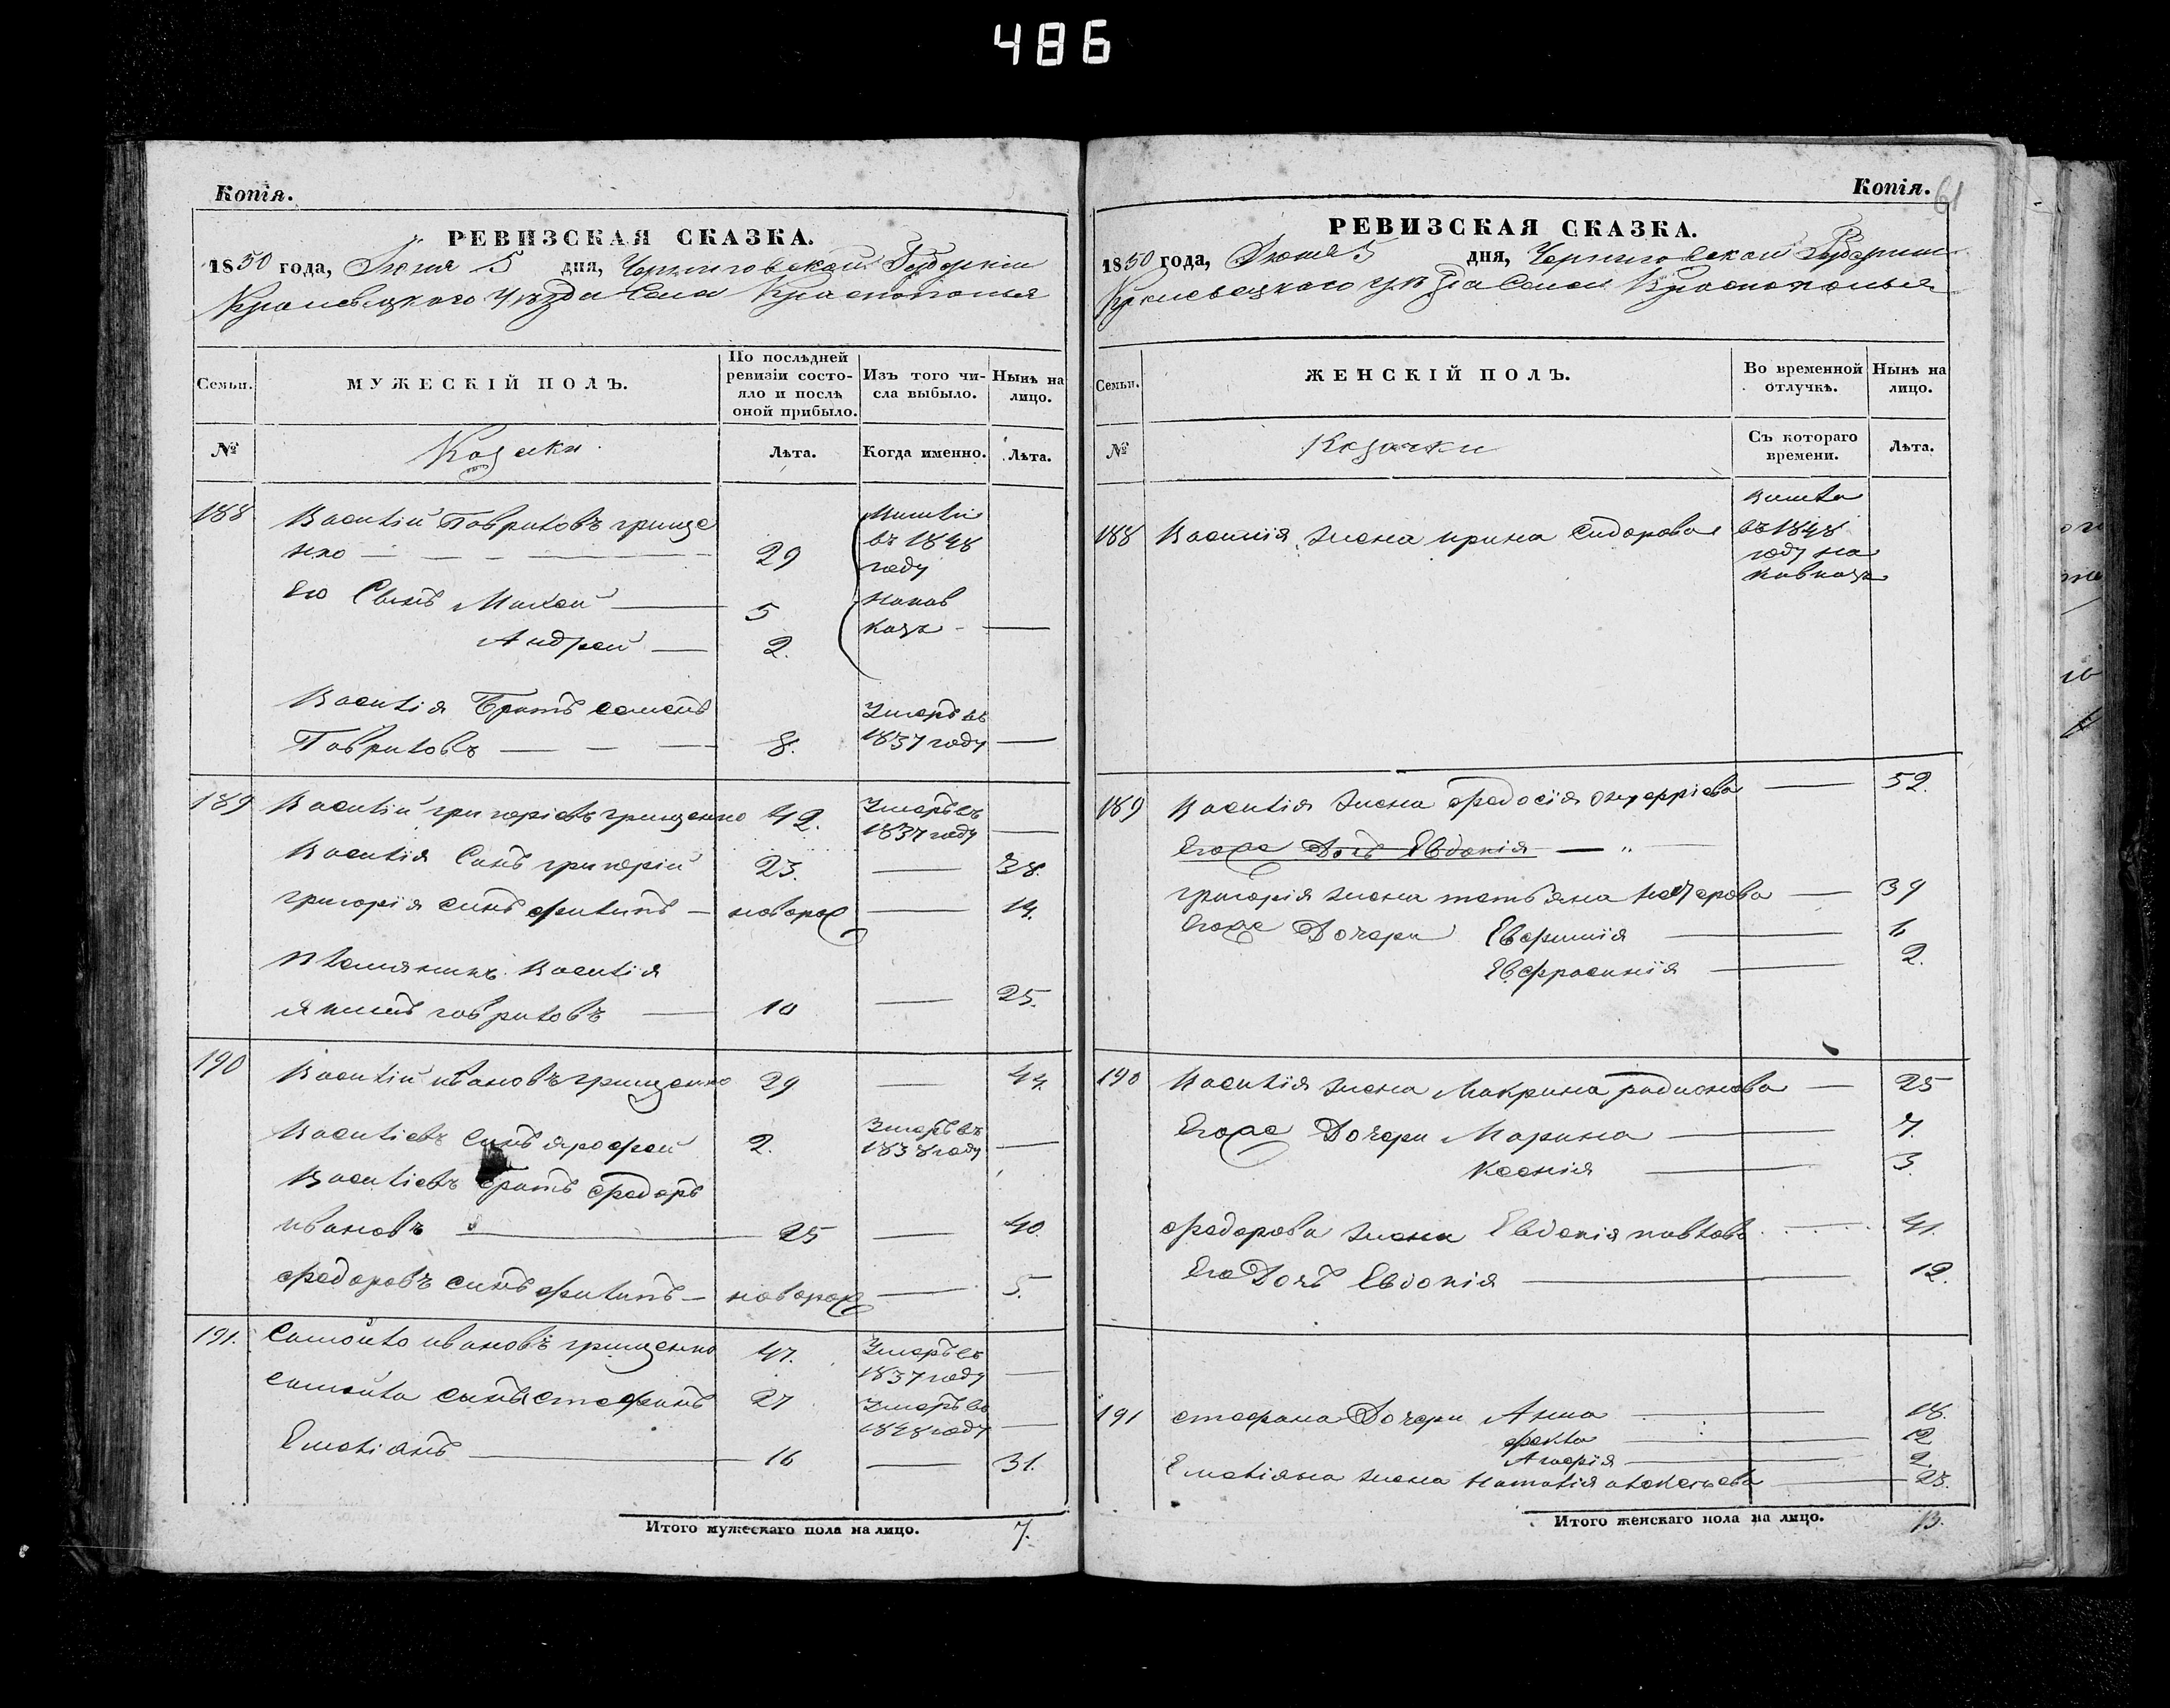 486
Копія.
РЕВИЗСКАЯ СКАЗКА.
1850 года, Іюня 5 дня, Черниговской Губерніи
Кролевецкого уѣзда Села Краснополья
Семьи. МУЖЕСКІЙ ПОЛЪ. По послѣдней ревизіи состояло и послѣ оной прибыло. Изъ того числа выбыло. Нынѣ на лицо.
№ Козаки Лѣта. Когда именно. Лѣта.
188 Василій Гавриловъ грище
нко — 29 въ 1848 году
Его Сынъ Мокей — 5 на Кав
Андрей — 2. казъ —
Василія Братъ семенъ
Гавриловъ — 8. Умеръ въ 1837 году —
189 Василій григоріевъ грищенко 42. Умеръ въ 1837 году —
Василія Сынъ григорій 23. — 38.
григорія сынъ филипъ — новорож — 14.
племянникъ Василія
якимъ гавриловъ — 10 — 25.
190 Василій ивановъ грищенко 29 — 44.
Василіевъ Сынъ ярофей 2. Умеръ въ 1838 году —
Василіевъ братъ федоръ
ивановъ — 25 — 40.
федоровъ сынъ филипъ — новорож — 5.
191. Самойло ивановъ грищенко 47. Умеръ въ 1837 году —
самойла сынъ стефанъ 27 Умеръ въ 1848 году —
Емеліанъ — 16 — 31.
Итого мужескаго пола на лицо. 7.
Копія. 61
РЕВИЗСКАЯ СКАЗКА.
1850 года, Іюня 5 дня, Черниговской Губерніи
Кролевецкого уѣзда Села Краснополья
Семьи. ЖЕНСКІЙ ПОЛЪ. Во временной отлучкѣ. Нынѣ на лицо.
№ Козачки Съ котораго времени. Лѣта.
188 Василія жена ирина Сидорова въ 1848 году на кавказъ
189 Василія жена федосія онуфріева — 52.
Егоже Дочь Евдокія — „ —
григорія жена татьяна — 39
Егоже Дочери Евфимія — 6
Евфросинія — 2.
190 Василія жена Макрина радионова — 25
Егоже Дочери Марина — 7.
Ксенія — 3.
федорова жена Евдокія павлова — 41.
Его Дочь Евдокія — 12.
191 стефана Дочери Анна — 18.
фекла — 12
— 2
Емеліяна жена Наталія алексѣева — 23.
Итого женскаго пола на лицо. 13.